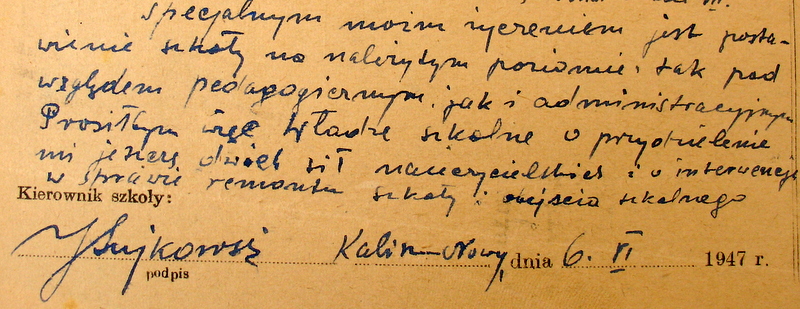 specjalnym moim życzeniem jest posta-
wienie szkoły na należytym poziomie, tak pod
względem pedagogicznym, jak i administracyjnym
Prosiłbym więc Władze szkolne o przydzielenie
mi jeszcze dwóch sił nauczycielskich i o interwencję
w sprawie remontu szkoły i obejścia szkolnego
Kierownik szkoły:
Kalin-Nowy, dnia 6. VI 1947 r.
podpis